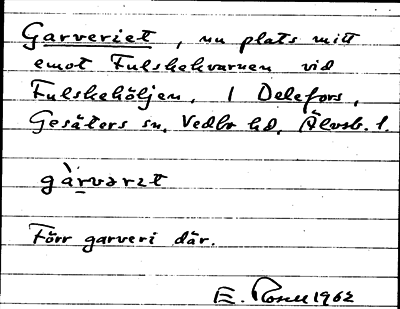 Garveriet, nu plats mitt
emot Fulskekvarnen vid
Fulskehöljen, 1 Delefors,
Gesäters sn, Vedbo hd, Älvsb. l.
gàrvərɛt
Förr garveri där.
E. Rosell 1962